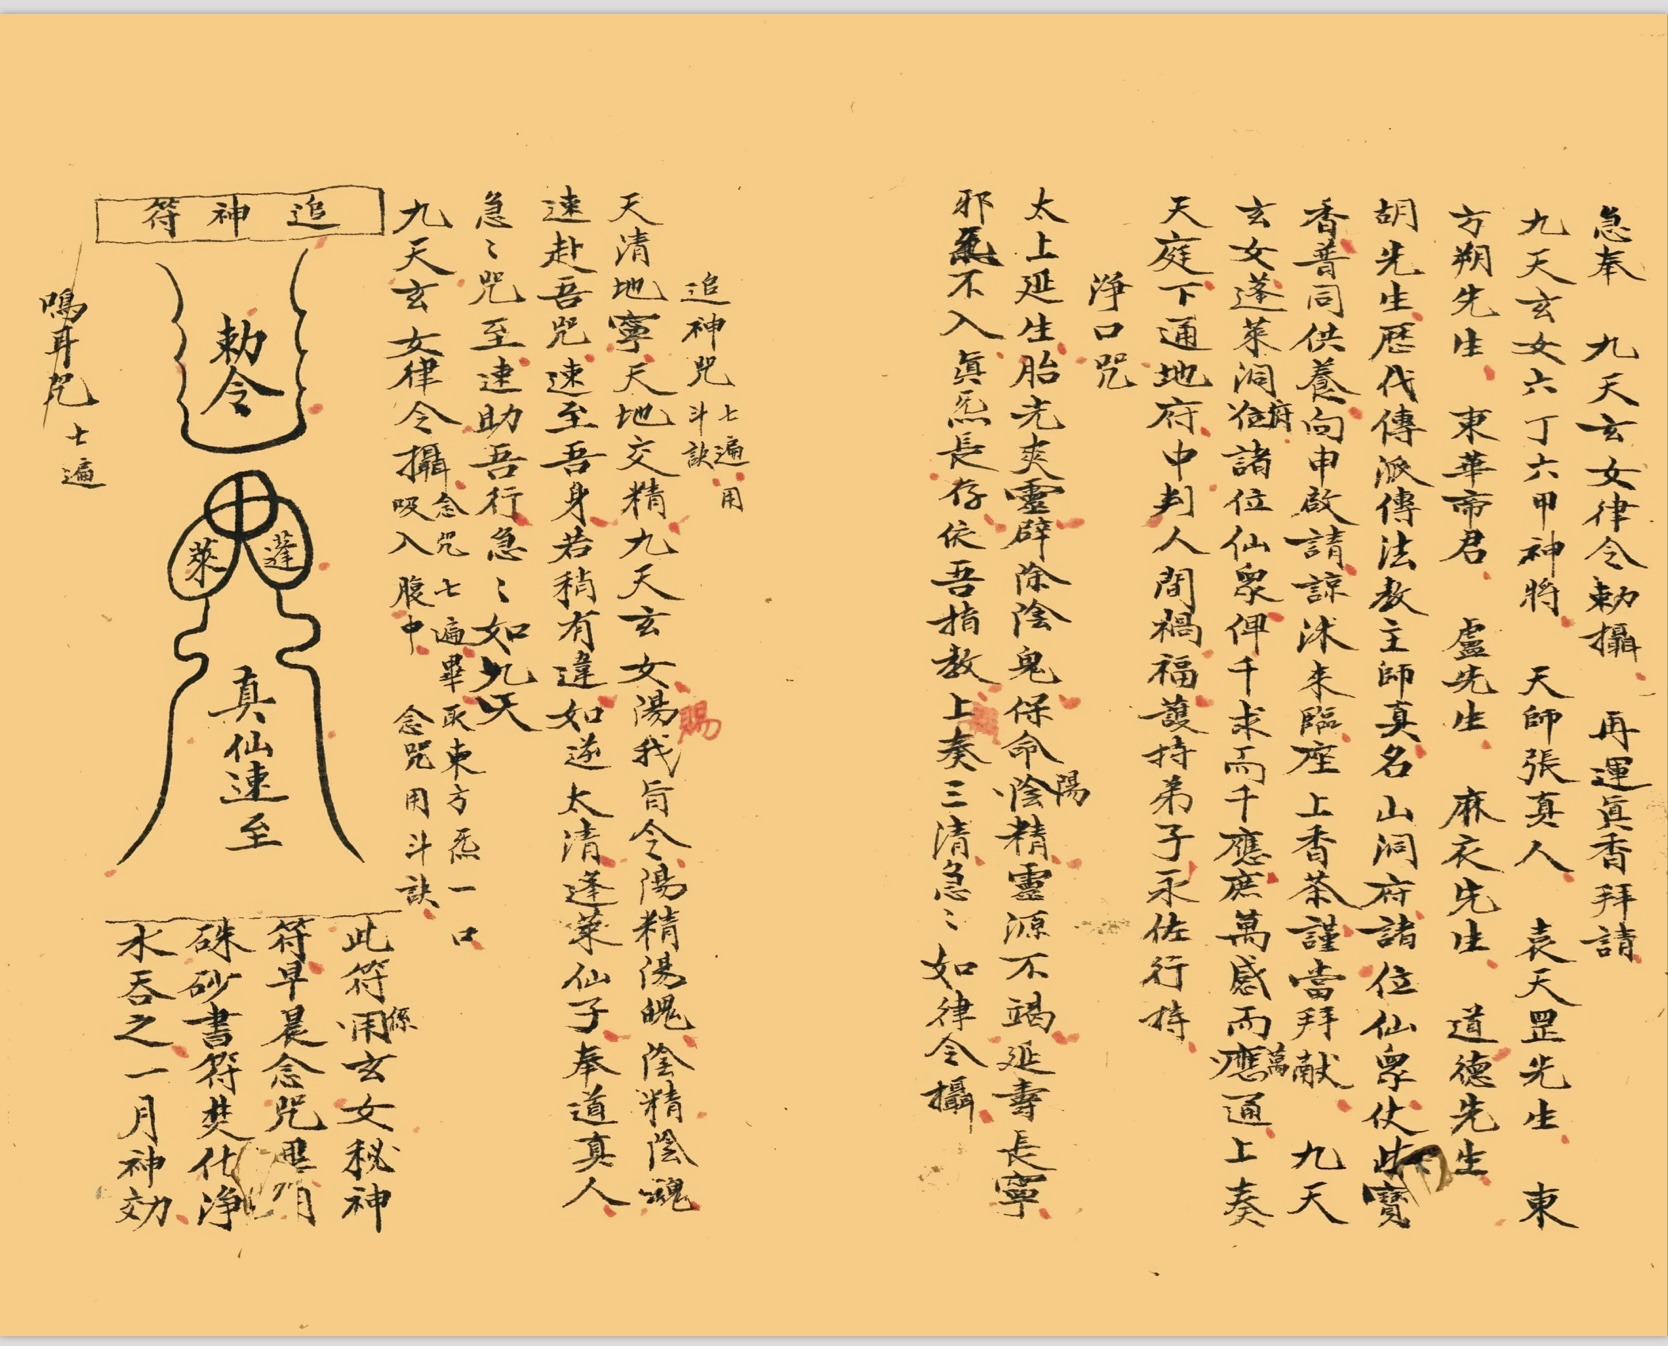 急奉　九天玄女律令勅攝　再運眞香拜請
九天玄女六丁六甲神將　天師張真人　袁天罡先生　東
方朔先生　東華帝君　盧先生　麻衣先生　道德先生
胡先生歷代傳派傳法教主師真名山洞府諸位仙衆仗此寳
香普同供養向申啟請諒沐來臨座上香茶謹當拜献　九天
玄女蓬萊洞府諸位仙衆俾千求而千應庶萬感而萬應通上奏
天庭下通地府中判人間禍福護持弟子永佐行持
淨口咒
太上延生胎光爽靈辟除陰鬼保命陽精靈源不竭延壽長寧
邪炁不入眞炁長存依吾指教上奏三清急〻如律令攝
追神咒 七遍用斗訣
天清地寧天地交精九天玄女賜我旨令陽精陽魄陰精陰魂
速赴吾咒速至吾身若稍有違如逆太清蓬萊仙子奉道真人
急〻咒至速助吾行急〻如九天
九天玄女律令攝 念咒七遍畢取東方炁一口
吸入腹中　念咒用斗訣
追神符
勅令
蓬萊
真仙速至
此符係用玄女秘神
符早晨念咒畢用
硃砂書符焚化淨
水吞之一月神効
鳴耳咒 七遍